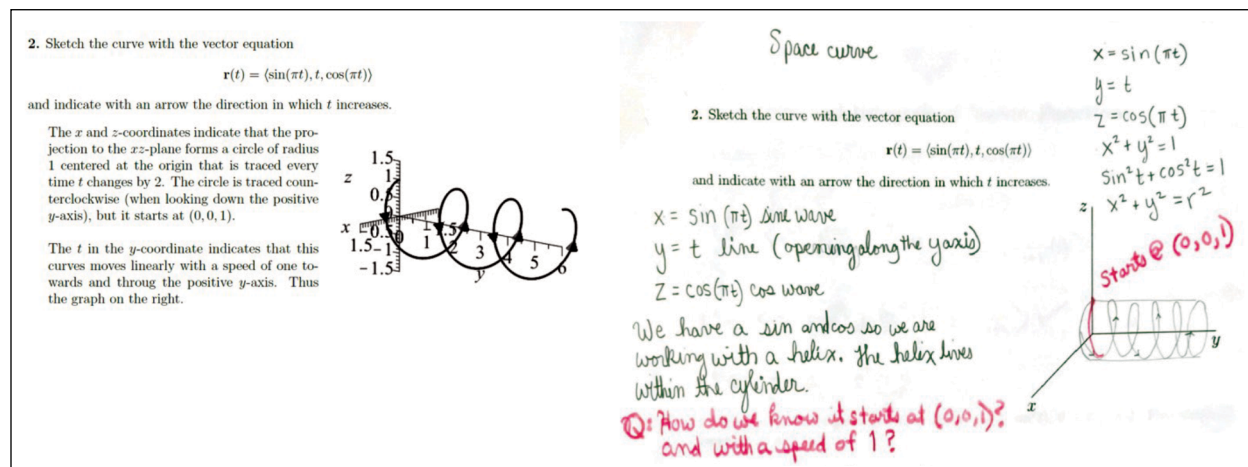 2. Sketch the curve with the vector equation
r(t) = ⟨sin(πt), t, cos(πt)⟩
and indicate with an arrow the direction in which t increases.
The x and z-coordinates indicate that the pro-
jection to the xz-plane forms a circle of radius
1 centered at the origin that is traced every
time t changes by 2. The circle is traced coun-
terclockwise (when looking down the positive
y-axis), but it starts at (0, 0, 1).
The t in the y-coordinate indicates that this
curves moves linearly with a speed of one to-
wards and throug the positive y-axis. Thus
the graph on the right.
1.5
z 1
x
1.5 1 2 3 4 5 6
-1.5
y
Space curve
2. Sketch the curve with the vector equation
r(t) = ⟨sin(πt), t, cos(πt)⟩
and indicate with an arrow the direction in which t increases.
x = sin (πt) sine wave
y = t line (opening along the y axis)
z = cos(πt) cos wave
We have a sin and cos so we are
working with a helix. The helix lives
within the cylinder.
Q: How do we know it starts at (0,0,1)?
and with a speed of 1?
x = sin(πt)
y = t
z = cos(πt)
x² + y² = 1
sin²t + cos²t = 1
x² + y² = r²
z
Starts @ (0,0,1)
y
x